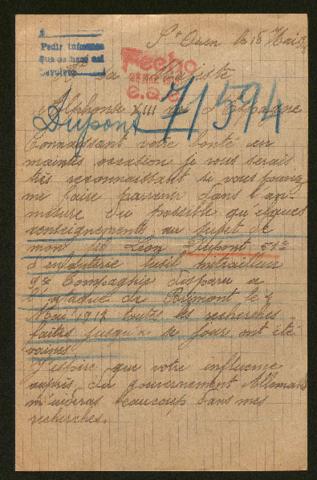 St Ouen le 18 Mai
Pedir informes
Fecho
Sa Majesté
Alphonse XIII
Dupont 71594
Connaissant votre bonté en
maintes occasion je vous serais
très reconnaissant si vous pouvez
me faire parvenir dans la
mesure du possible quelques
renseignements au sujet de
mon fils Léon Dupont
d'infanterie fusil mitrailleur
9e Compagnie disparu a
l'attaque de le
Mai 1917 toutes les recherches
faites jusqu'a ce jour ont été
vaines.
J'espère que votre influence
auprès du gouvernement Allemand
m'aideras beaucoup dans mes
recherches.